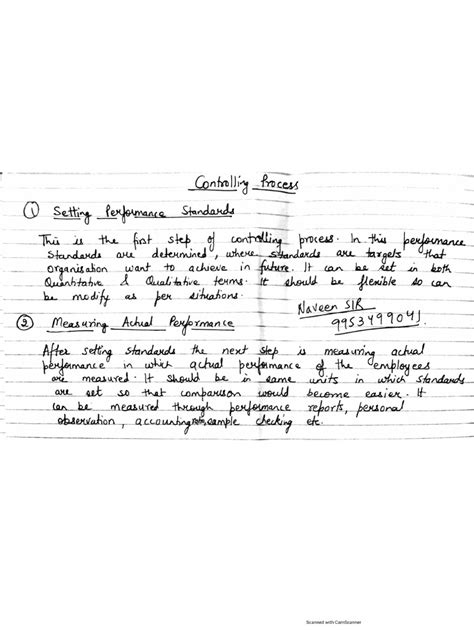 Controlling Process
① Setting Performance Standards
This is the first step of controlling process. In this performance
Standards are determined, where standards are targets that
organisation want to achieve in future. It can be set in both
Quantitative & Qualitative terms. It should be flexible so can
be modify as per situations.
Naveen SIR
9953499041.
② Measuring Actual Performance
After setting standards the next step is measuring actual
performance in which actual performance of the employees
are measured. It should be in same units in which standards
are set so that comparison would become easier. It
can be measured through performance reports, personal
observation, accounting sample checking etc.
Scanned with CamScanner